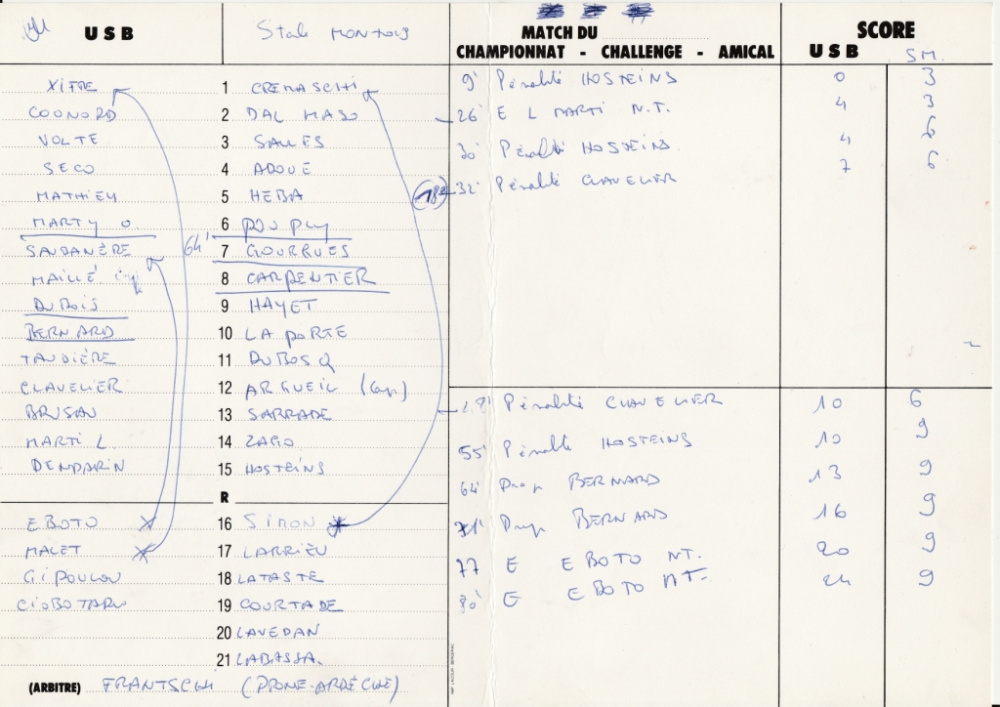 USB Stade MONTOIS MATCH DU SCORE
CHAMPIONNAT - CHALLENGE - AMICAL USB S.M.
XIFRE 1 CREMASCHI
COGNORD 2 DAL MASO
VOLTE 3 SALLES
SECO 4 ADOUE
MATHIEU 5 HEBA
MARTY O. 6 POUPLY
SAUBANÈRE 64' 7 GOURGUES
MAILLÉ 8 CARPENTIER
DUBOIS 9 HAYET
BERNARD 10 LAPORTE
TAUDIÈRE 11 DUBOSQ
CLAVELIER 12 ARGUEIL (Cap)
BRUSAU 13 SARRADE
MARTI L. 14 ZAGO
DENDARIN 15 HOSTEINS
R
EBOTO 16 SIMON
MALET 17 LARRIEU
GIPOULOU 18 LATASTE
CIOBOTARU 19 COURTADE
20 LAVEDAN
21 LABASSA.
(ARBITRE) FRANTSCHI (DROME-ARDÈCHE)
9' Pénalité HOSTEINS 0 3
26' E L MARTI N.T. 4 3
30' Pénalité HOSTEINS. 4 6
32' Pénalité CLAVELIER 7 6
Pénalité CLAVELIER 10 6
55' Pénalité HOSTEINS 10 9
64' Drop BERNARD 13 9
71' Drop BERNARD 16 9
77 E EBOTO NT. 20 9
80' E EBOTO NT. 24 9